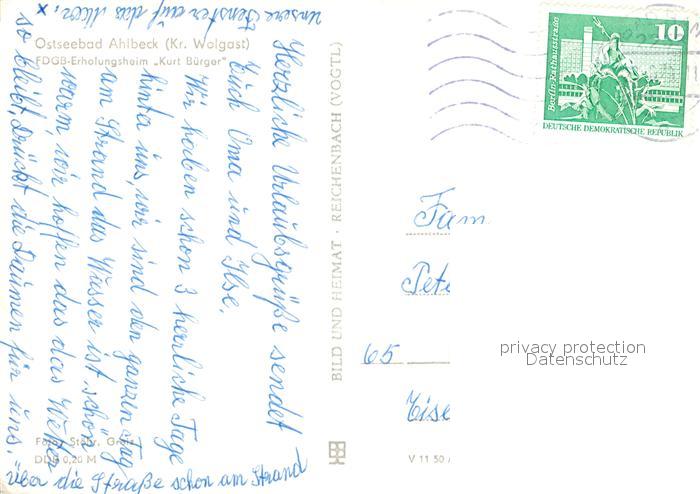 Ostseebad Ahlbeck (Kr. Wolgast)
FDGB-Erholungsheim „Kurt Bürger"
Herzliche Urlaubsgrüße sendet
Euch Oma und Ilse.
Wir haben schon 3 herrliche Tage
hinter uns, wir sind den ganzen Tag
am Strand das Wasser ist schön
warm, wir hoffen das das Wetter
so bleibt, drückt die Daumen für uns.
über die Straße schon am Strand
x unsere Fenster auf das Meer.
Foto: Stöhr, Greiz
DDR 0,20 M
BILD UND HEIMAT · REICHENBACH (VOGTL)
V 11 50
10
Berlin-Rathausstraße
DEUTSCHE DEMOKRATISCHE REPUBLIK
Fam
Pete
65
Eise
privacy protection
Datenschutz